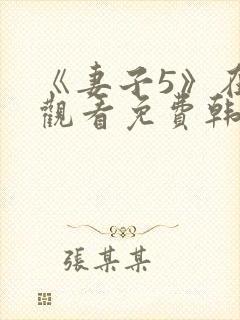 《妻子5》在
觀看免費韩
張某某